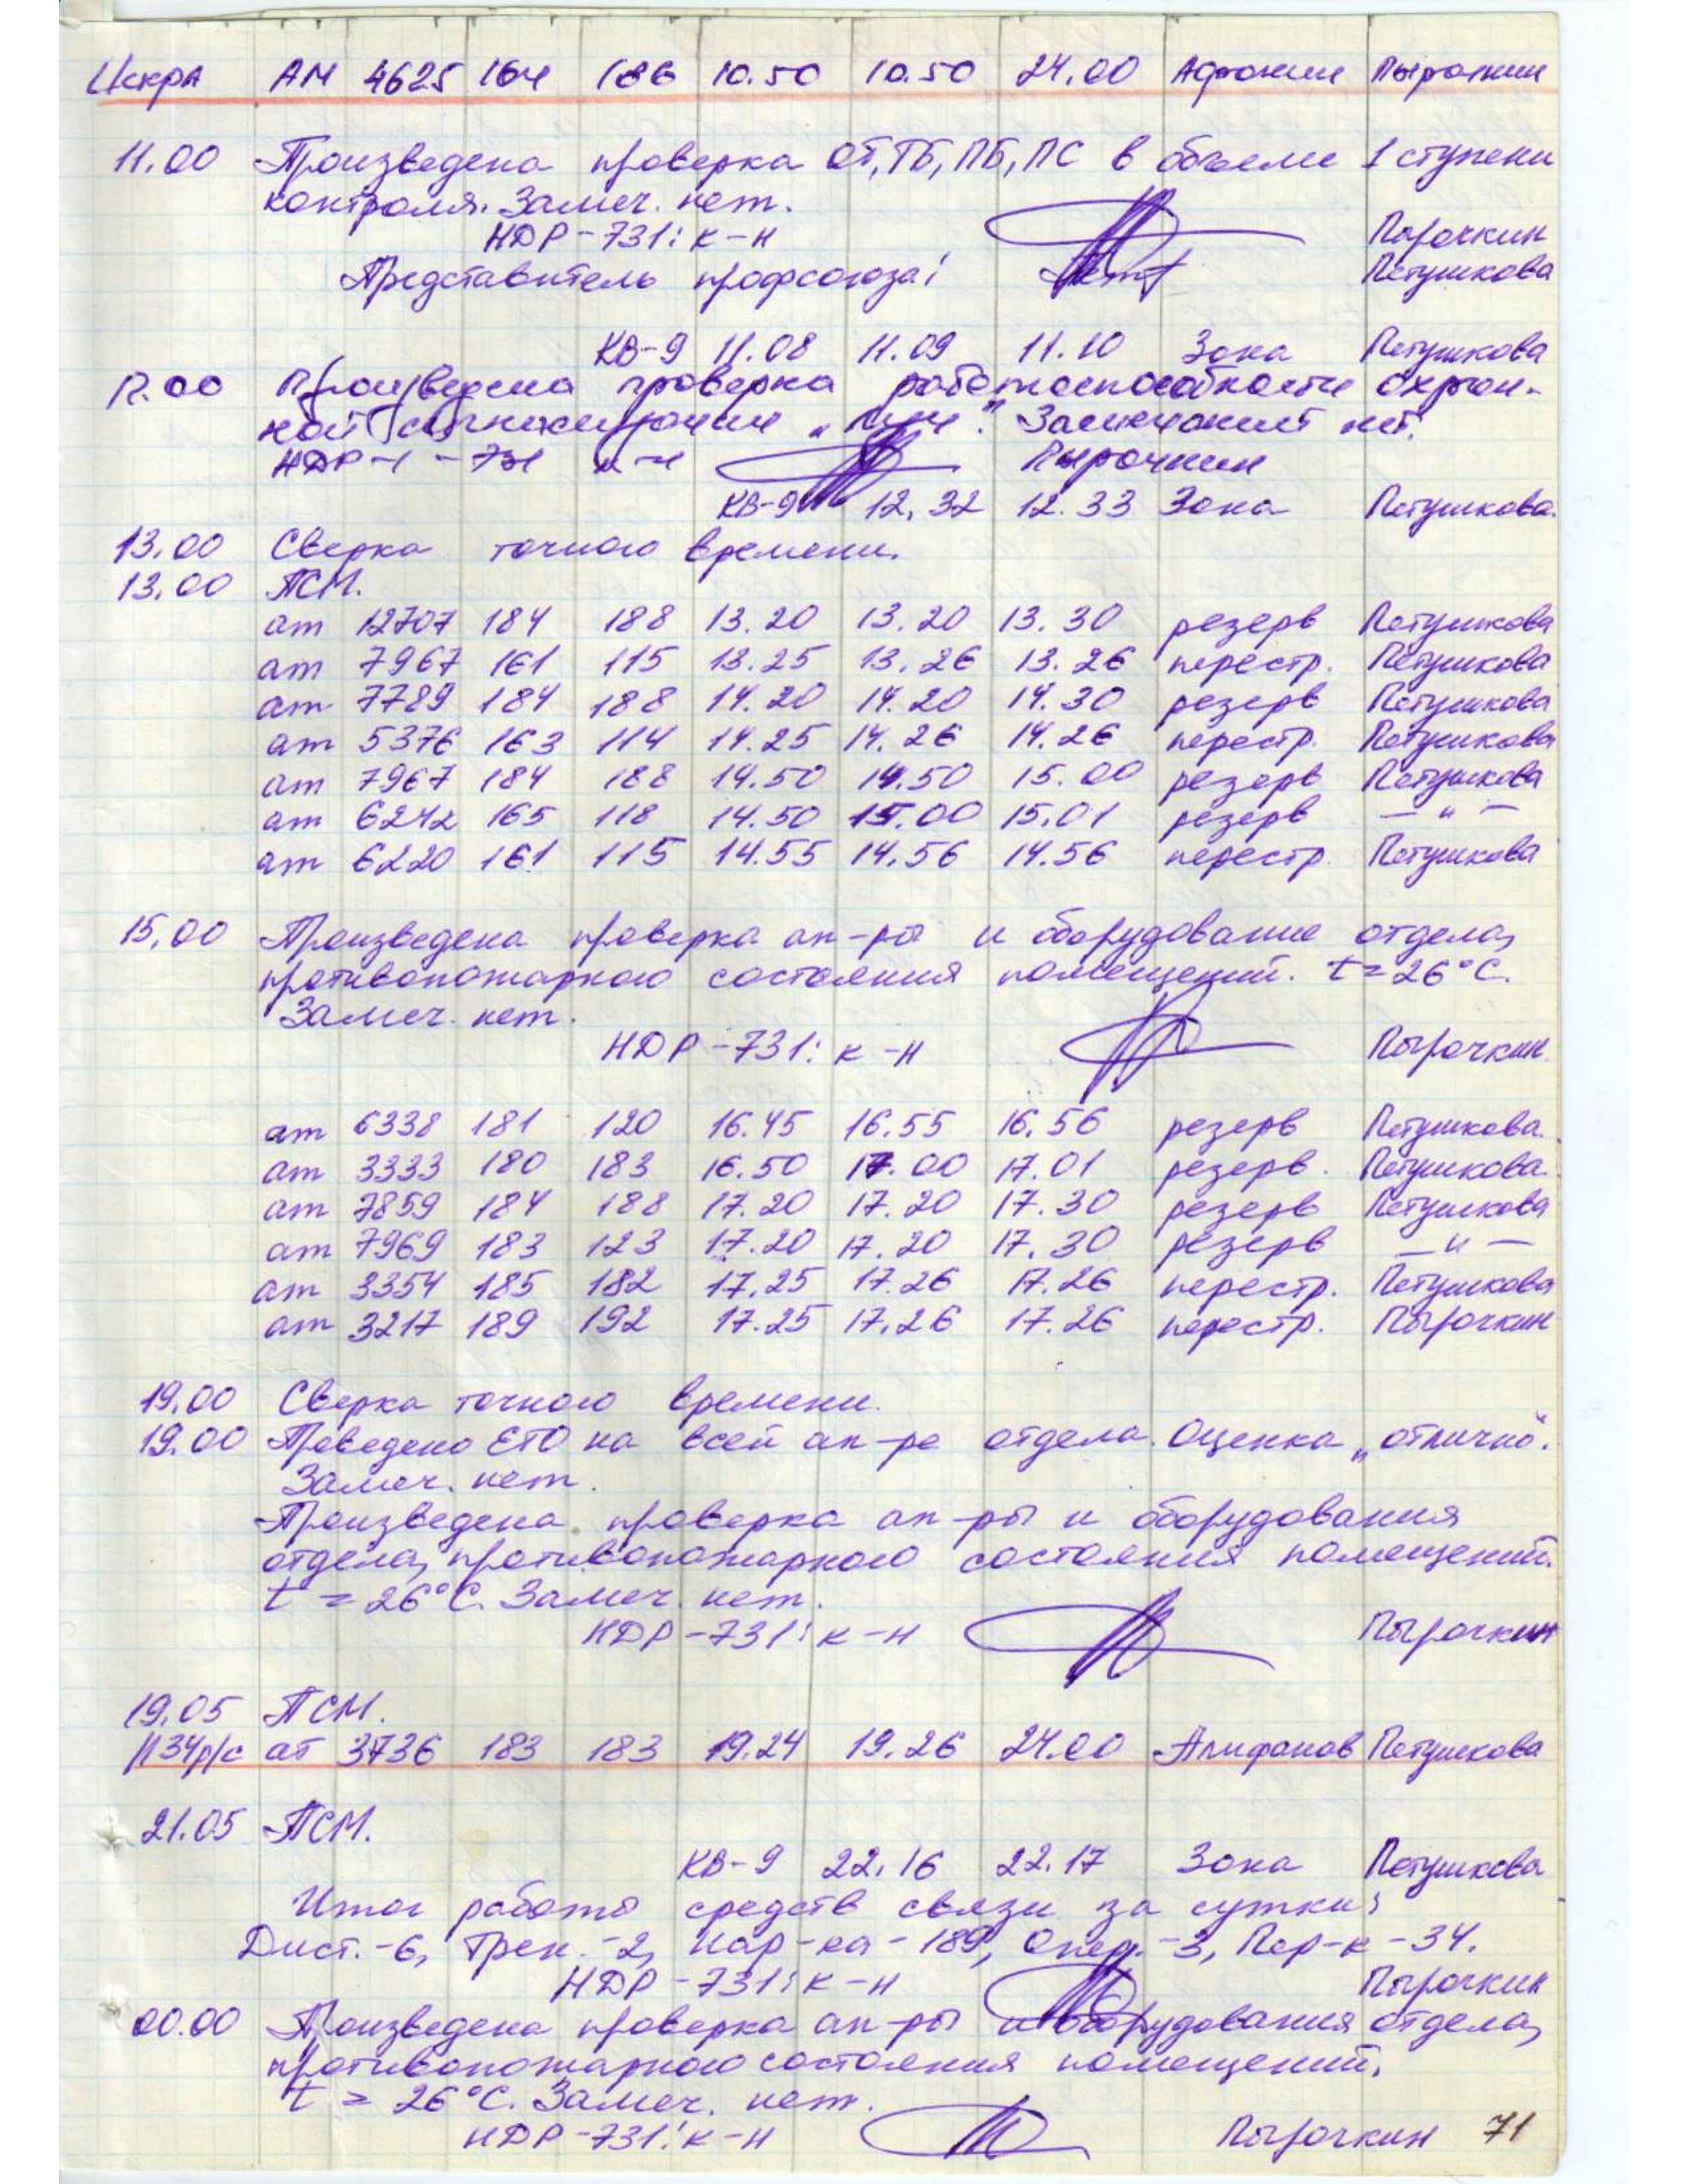 Искра АМ 4625 164 186 10.50 10.50 24.00 Афонин Пырочкин
11.00 Произведена проверка ОТ, ТБ, ПБ, ПС в объеме 1 ступени
контроля. Замеч. нет.
НДР-731: к-н Пырочкин
Представитель профсоюза: Петушкова
КВ-9 11.08 11.09 11.10 Зона Петушкова
12.00 Произведена проверка работоспособности охран-
ной сигнализации „Луч". Замечаний нет.
НДР-1-731 к-н Пырочкин
КВ-9 12.32 12.33 Зона Петушкова.
13.00 Сверка точного времени.
13.00 ПСМ.
ат 12707 184 188 13.20 13.20 13.30 резерв Петушкова
ат 7967 161 115 13.25 13.26 13.26 перестр. Петушкова
ат 7789 184 188 14.20 14.20 14.30 резерв Петушкова
ат 5376 163 114 14.25 14.26 14.26 перестр. Петушкова
ат 7967 184 188 14.50 14.50 15.00 резерв Петушкова
ат 6242 165 118 14.50 15.00 15.01 резерв — " —
ат 6220 161 115 14.55 14.56 14.56 перестр. Петушкова
15.00 Произведена проверка ап-ры и оборудование отдела,
противопожарного состояния помещений. t=26°С.
Замеч. нет.
НДР-731: к-н Пырочкин
ат 6338 181 120 16.45 16.55 16.56 резерв Петушкова.
ат 3333 180 183 16.50 17.00 17.01 резерв. Петушкова.
ат 7859 184 188 17.20 17.20 17.30 резерв Петушкова
ат 7969 183 123 17.20 17.20 17.30 резерв — " —
ат 3354 185 182 17.25 17.26 17.26 перестр. Петушкова
ат 3217 189 192 17.25 17.26 17.26 перестр. Пырочкин
19.00 Сверка точного времени.
19.00 Проведено ЕТО на всей ап-ре отдела. Оценка „отлично".
Замеч. нет.
Произведена проверка ап-ры и оборудования
отдела, противопожарного состояния помещений.
t = 26°С. Замеч. нет.
НДР-731: к-н Пырочкин
19.05 ПСМ.
1134р/с ат 3736 183 183 19.24 19.26 24.00 Алифанов Петушкова
21.05 ПСМ.
КВ-9 22.16 22.17 Зона Петушкова
Итог работы средств связи за сутки:
Дист.-6, Трен.-2, Нар-ка-189, Опер.-3, Пер-к-34.
НДР-731: к-н Пырочкин
00.00 Произведена проверка ап-ры и оборудования отдела,
противопожарного состояния помещений,
t = 26°С. Замеч. нет.
НДР-731: к-н Пырочкин 71